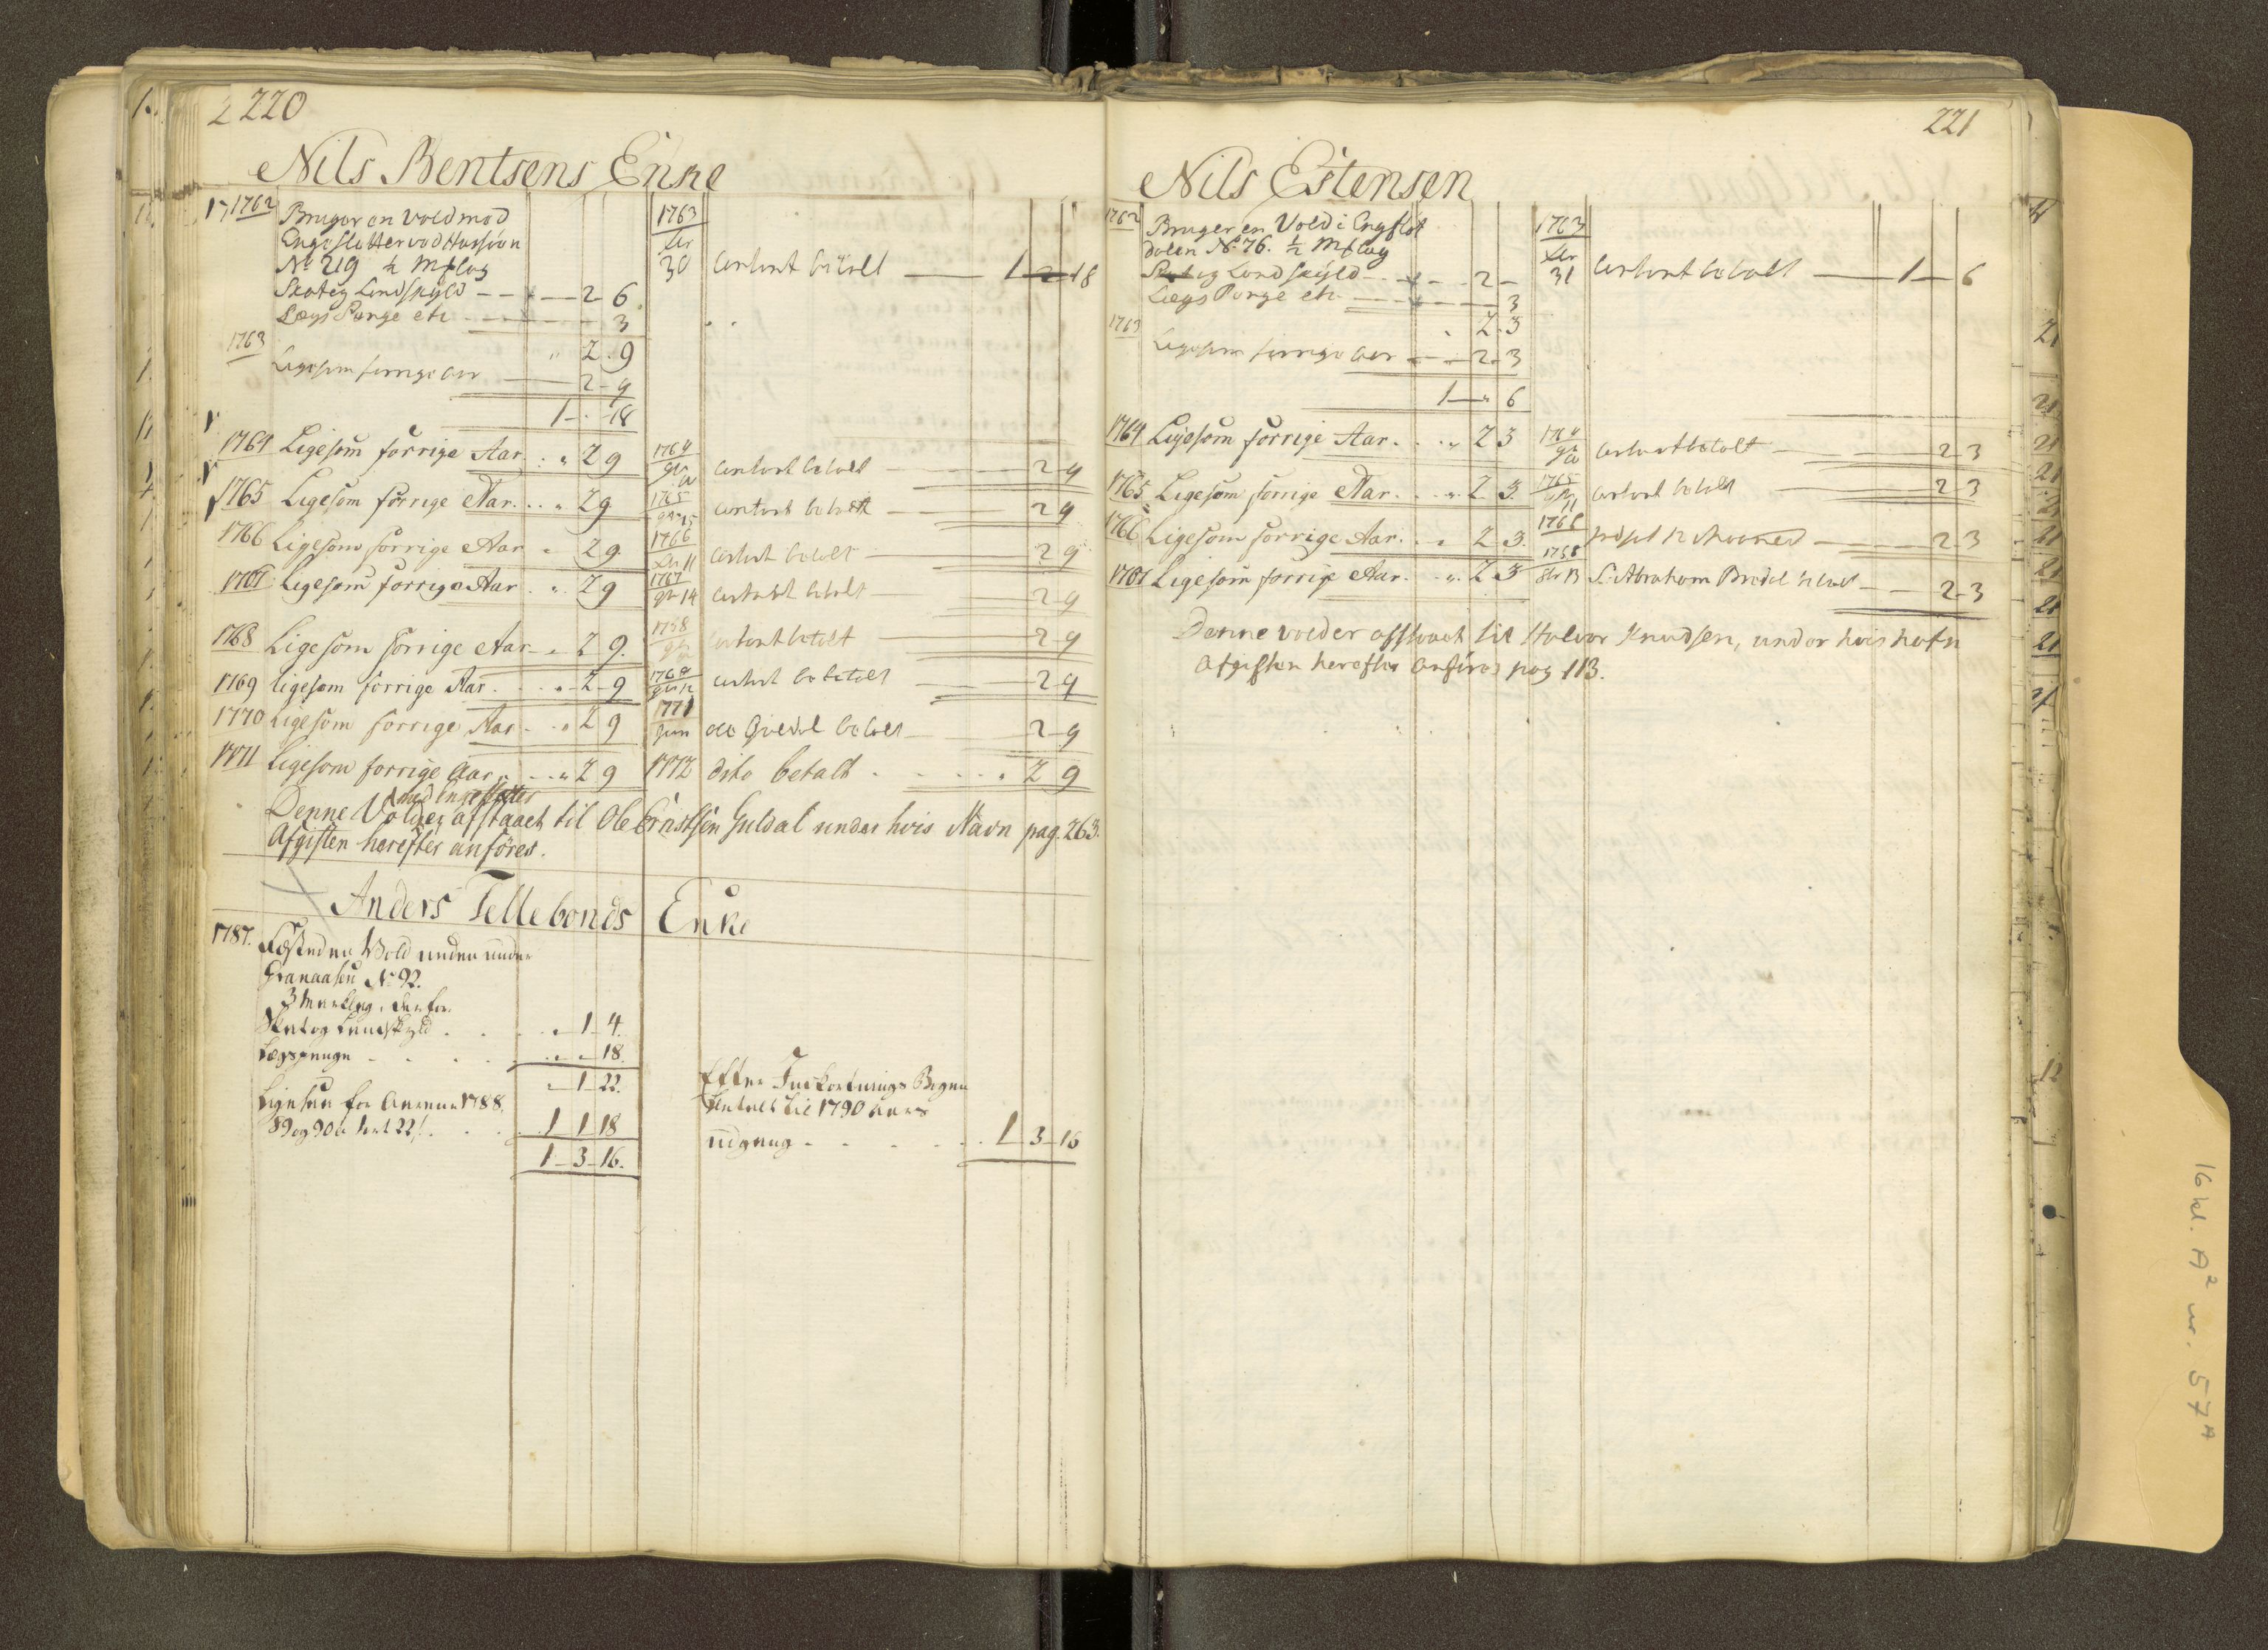 220
Nils Bentsens Enke
1762 Bruger en Vold med
Engesletter ved Hassiøn
No 219 ½ Mſlag
Skat og Landskyld 2 6
Lægs Penge etc 3
" 2 9
1763 Ligesom forrige Aar 2 9
1 " 18
1764 Ligesom forrige Aar 2 9
1765 Ligesom forrige Aar 2 9
1766 Ligesom forrige Aar 2 9
1767 Ligesom forrige Aar 2 9
1768 Ligesom forrige Aar 2 9
1769 ligesom forrige Aar 2 9
1770 Ligesom forrige Aar 2 9
1771 Ligesom forrige Aar 2 9
1763
30 contant betalt 1 18
1764 contant betalt 2 9
1765 contant betalt 2 9
1766 11 contant betalt 2 9
1767 14 contant betalt 2 9
1768 contant betalt 2 9
1769 12 contant betalt 2 9
1771 Ole Guldal betalt 2 9
1772 dito betalt 2 9
med Engesletter
Denne Vold er afstaaet til Ole Erichsen Guldal under hvis Navn pag. 263.
Afgiften herefter anføres.
Anders Tellebonds Enke
1787. Fæsted en Vold neden under
Granaasen No 92.
3 Markleg, derfor
Skat og Landskyld 1 4.
Lægspenge 18.
1 22.
Ligesaa for Aarene 1788.
89 og 90 a 1 ort 22 s. 1 1 18
1 3 16.
Efter Indkortnings Bogen
betalt til 1790 Aars
udgang 1 3 16
221
Nils Estensen
1762 Bruger en Vold i Engslet
dalen No 76. ½ Mſlag
Skat og Landskyld 2
Lægs Penge etc 3
2 3
1763 Ligesom forrige Aar 2 3
1 " 6
1764 Ligesom forrige Aar 2 3
1765 Ligesom forrige Aar 2 3
1766 Ligesom forrige Aar 2 3
1767 Ligesom forrige Aar 2 3
1763
31 contant betalt 1 6
1764 contant betalt 2 3
1765 11 contant betalt 2 3
1766 12 2 3
1768 13 Abraham betalt 2 3
Denne vold er afstaaet til Halvor Knudsen, under hvis nafn
Afgiften herefter anføres pag 113.
16 kl. A² nr. 57ᴬ